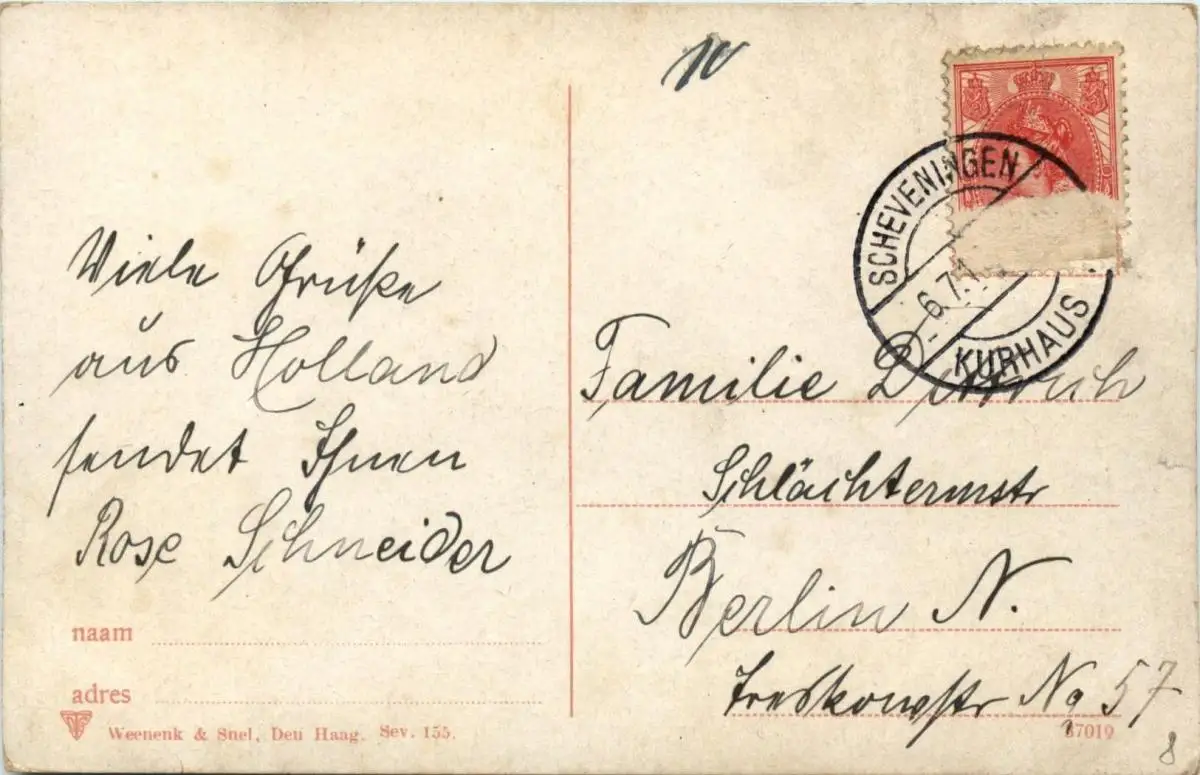 Viele Grüße
aus Holland
sendet Ihnen
Rose Schneider
naam
adres
Weenenk & Snel, Den Haag. Sev. 155.
SCHEVENINGEN
6.7.1
KURHAUS
Familie Dittrich
Schlächtermstr
Berlin N.
Treskowstr No 57
37019
8